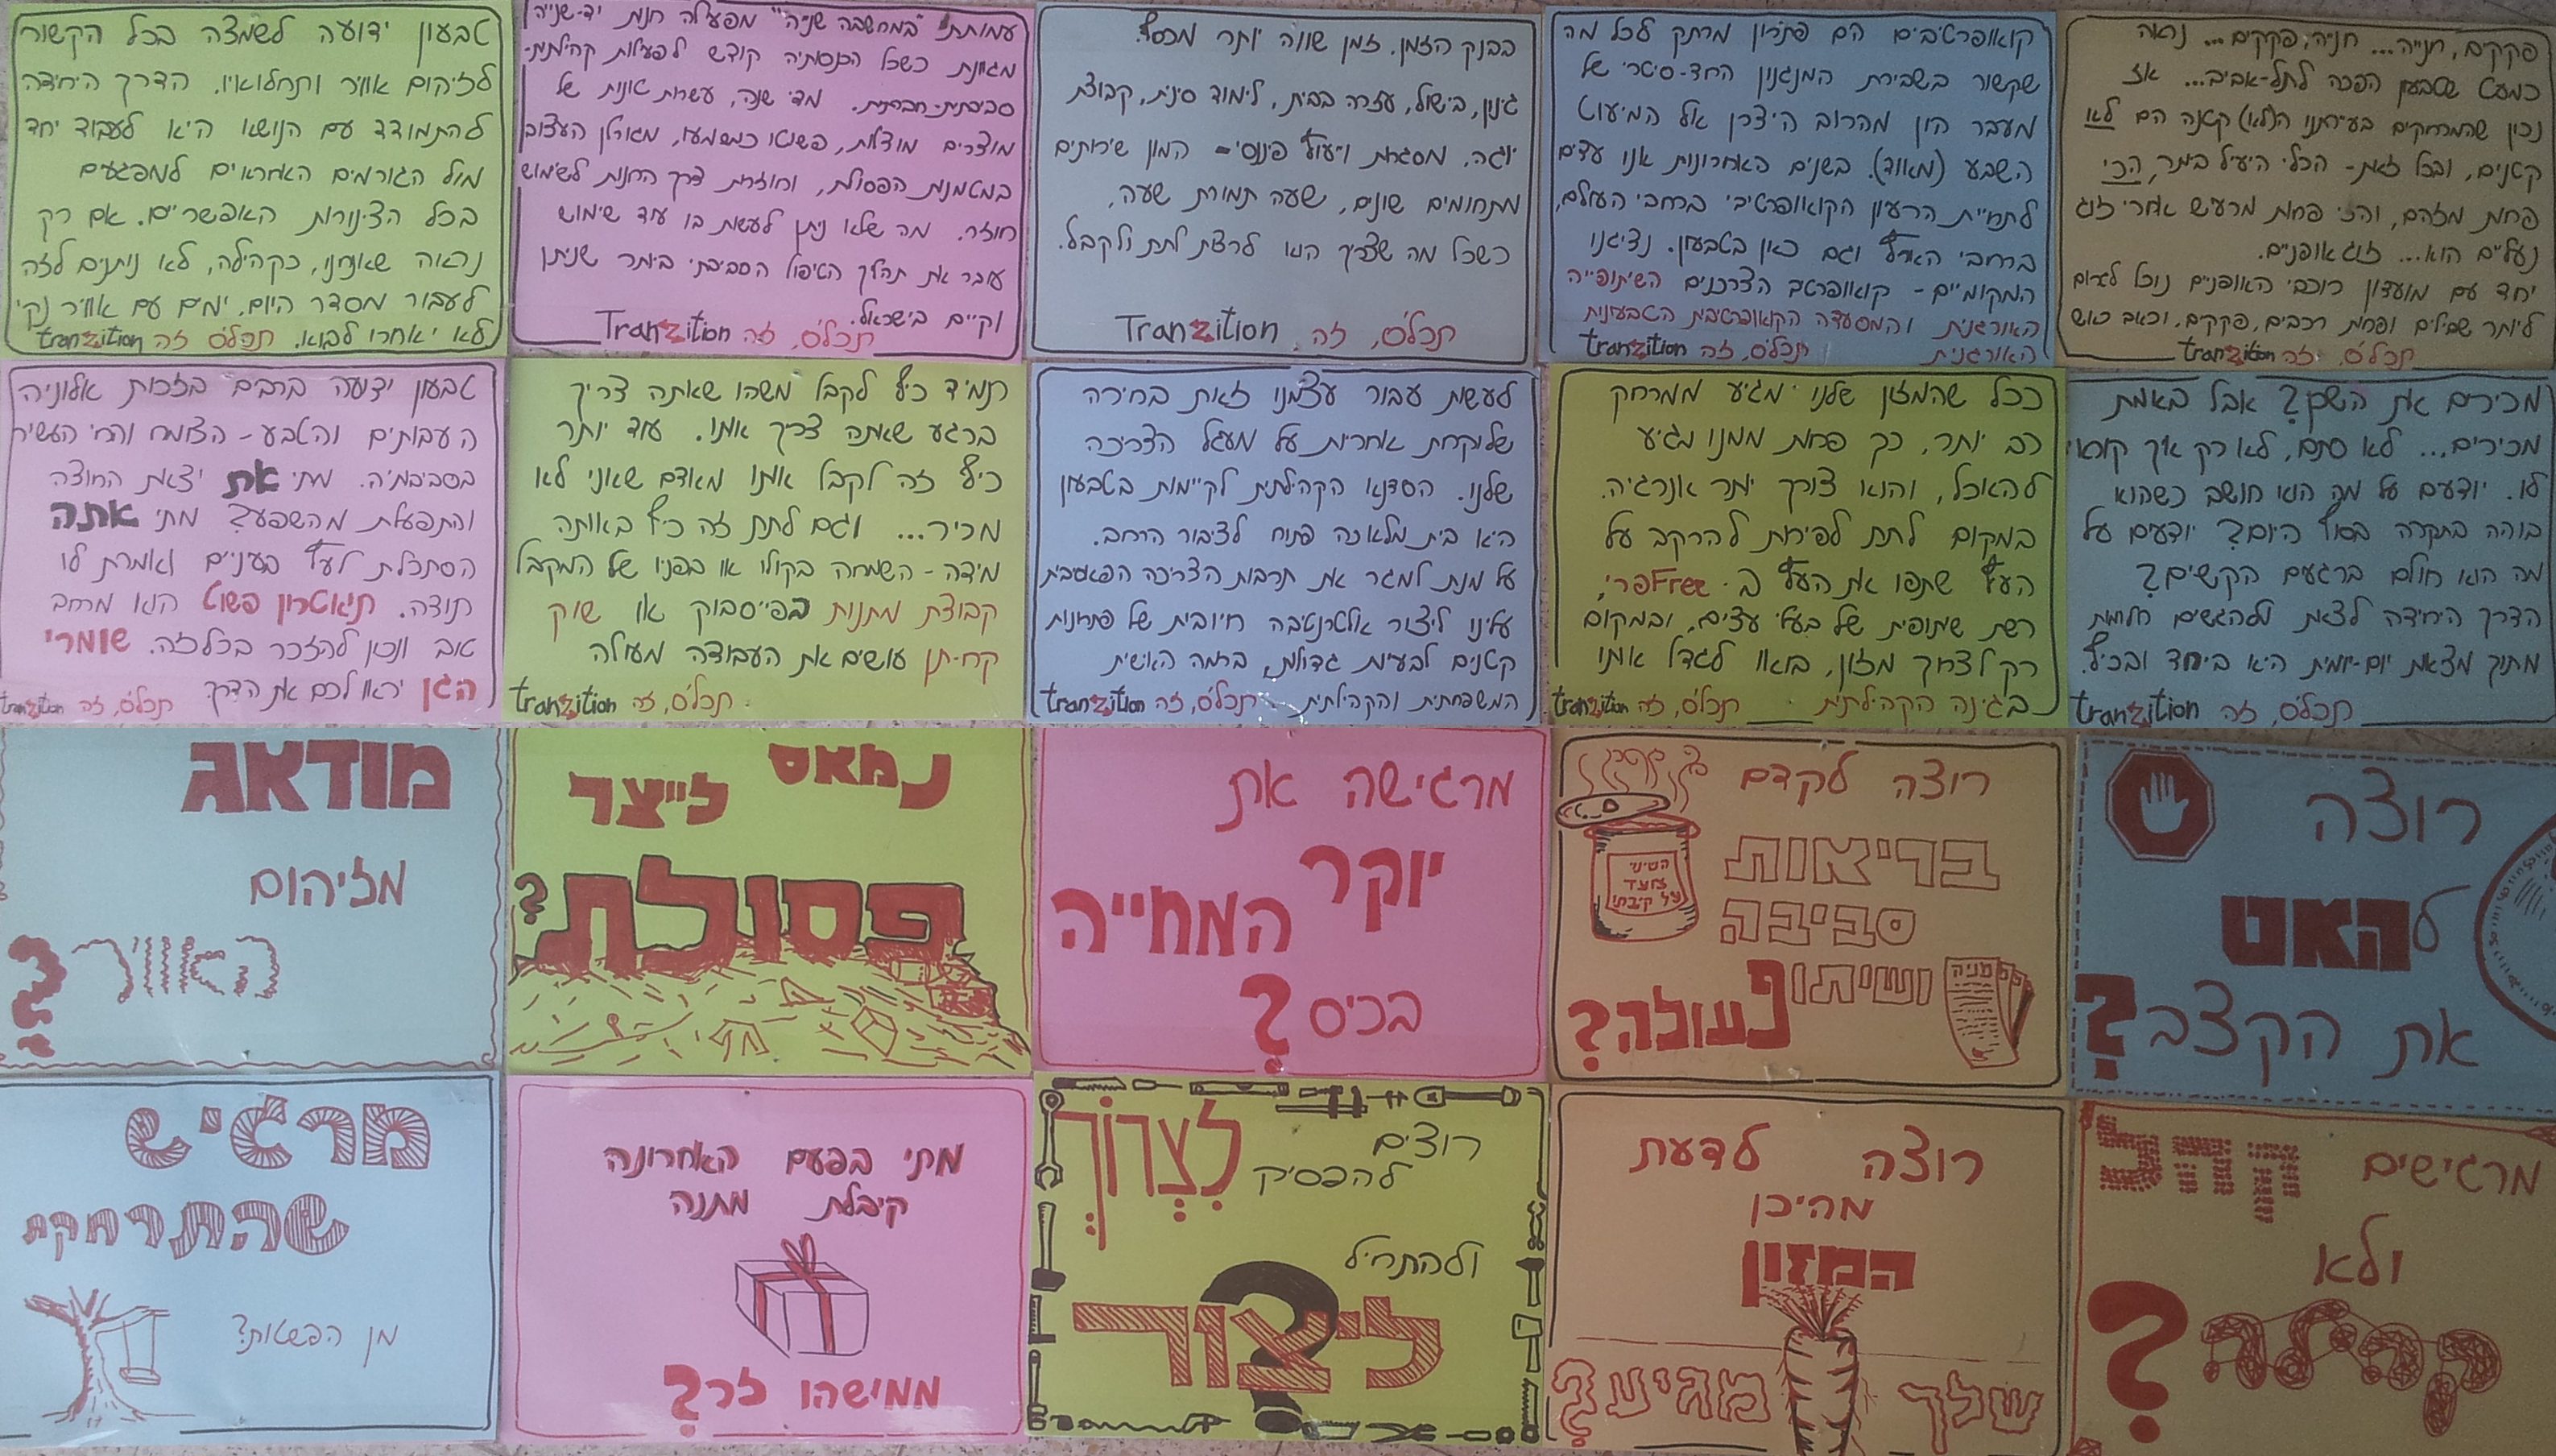 פקקים, חנייה... חניה, פקקים... נראה
כמעט שטבעון הפכה לתל-אביב... אז
נכון שהמרחקים בעיירתנו (הלא) קטנה הם לא
קטנים, ובכל זאת - הכלי היעיל ביותר, הכי
פחות מזהם, והכי פחות מרעיש אחרי זוג
נעליים הוא... זוג אופניים.
יחד עם מועדון רוכבי האופניים נוכל לגרום
ליותר שבילים ופחות רכבים, פקקים, וכאב ראש
תכל'ס, זה tranzition
קואופרטיבים הם פתרון מרתק לכל מה
שקשור בשבירת המנגנון החד-סיטרי של
מעבר הון מהרוב היצרן אל המיעוט
השבע (מאוד). בשנים האחרונות אנו עדים
לתחיית הרעיון הקואופרטיבי ברחבי העולם,
ברחבי הארץ וגם כאן בטבעון. נציגנו
המקומיים - קואופרטיב הצרכנים השיתופייה
האורגנית והמסעדה הקואופרטיבית הטבעונית
האורגנית תכל'ס, זה tranzition
בבנק הזמן. זמן שווה יותר מכסף.
גינון, בישול, עזרה בבית, לימוד סינית, קבוצת
יוגה, מסגרות וייעוץ פיננסי - המון שירותים
מתחומים שונים, שעה תמורת שעה,
כשכל מה שצריך הוא לרצות לתת ולקבל.
תכל'ס, זה Tranzition
עמותת "במחשבה שנייה" מפעילה חנות יד-שנייה
מגוונת כשכל הכנסתיה קודש לפעילות קהילתית-
סביבתית-חברתית. מדי שנה, עשרות טונות של
מוצרים מוצלות, פשוטו כמשמעו, מגורלן העצוב
במטמנות הפסולת, וחוזרות דרך החנות לשימוש
חוזר. מה שלא ניתן לעשות בו עוד שימוש
עובר את תהליך הטיפול הסביבתי ביותר שניתן
וקיים בישראל.
תכל'ס, זה Tranzition
טבעון ידועה לשמצה בכל הקשור
לזיהום אוויר ותחלואיו. הדרך היחידה
להתמודד עם הנושא היא לעבוד יחד
מול הגורמים האחראים למפגעים
בכל הצינורות האפשריים. אם רק
נראה שאנחנו, כקהילה, לא ניתנים לזה
לעבור מסדר היום, ימים עם אוויר נקי
לא יאחרו לבוא. תכל'ס זה tranzition
מכירים את השכן? אבל באמת
מכירים... לא סתם, לא רק איך קוראים
לו. יודעים על מה הוא חושב כשהוא
בוהה בתקרה בסוף היום? יודעים על
מה הוא חולם ברגעים הקשים?
הדרך היחידה לצאת ולהגשים חלומות
מתוך מציאות יום-יומית היא ביחד ובכיף.
תכל'ס, זה tranzition
ככל שהמזון שלנו מגיע ממרחק
רב יותר, כך פחות ממנו מגיע
להאכל, והוא צורך יותר אנרגיה.
במקום לתת לפירות להרקב על
העץ שתפו את העץ ב-Freeפרי,
רשת שיתופית של בעלי עצים. ובמקום
רק לצרוך מזון, בואו לגדל אותו
בגינה הקהילתית תכל'ס, זה tranzition
לעשות עבור עצמנו זאת בחירה
שלוקחת אחריות על מעגל הצריכה
שלנו. הסדנא הקהילתית לקיימות בטבעון
היא בית מלאכה פתוח לציבור הרחב.
על מנת למגר את תרבות הצריכה הפאסיבית
עלינו ליצור אלטרנטיבה חיובית של פתרונות
קטנים לבעיות גדולות, ברמה האישית
המשפחתית והקהילתית תכל'ס, זה tranzition
תמיד כיף לקבל משהו שאתה צריך
ברגע שאתה צריך אותו. עוד יותר
כיף זה לקבל אותו מאדם שאני לא
מכיר... וגם לתת זה כיף באותה
מידה - השמחה בקולו או בפניו של המקבל
קבוצת מתנות בפייסבוק או שוק
קח-תן עושים את העבודה מעולה
תכל'ס, זה tranzition
טבעון ידועה ברבים בזכות אלוניה
העבותים והטבע - הצומח והחי העשיר
בסביבתיה. מתי את יצאת החוצה
והתפעלת מהשפע? מתי אתה
הסתכלת לעץ בעיניים ואמרת לו
תודה. תיאטרון פשוט הוא מרחב
טוב ונכון להזכר בכל זה. שומרי
הגן יראו לכם את הדרך תכל'ס, זה tranzition
רוצה
להאט
את הקצב?
רוצה לקדם
בריאות
סביבה
ושיתופ
פעולה?
השינוי
צועד
על קיבתו
מניה
מרגישה את
יוקר
המחייה
בכיס?
נמאס
לייצר
פסולת?
מודאג
מזיהום
האוויר?
מרגישים קהל
ולא
קהילה?
רוצה לדעת
מהיכן
המזון
שלך מגיע?
רוצים לצרוך
להפסיק
ולהתחיל
ליצור?
מתי בפעם האחרונה
קיבלת מתנה
ממישהו זר?
מרגיש
שהתרחקת
מן הפשטות?